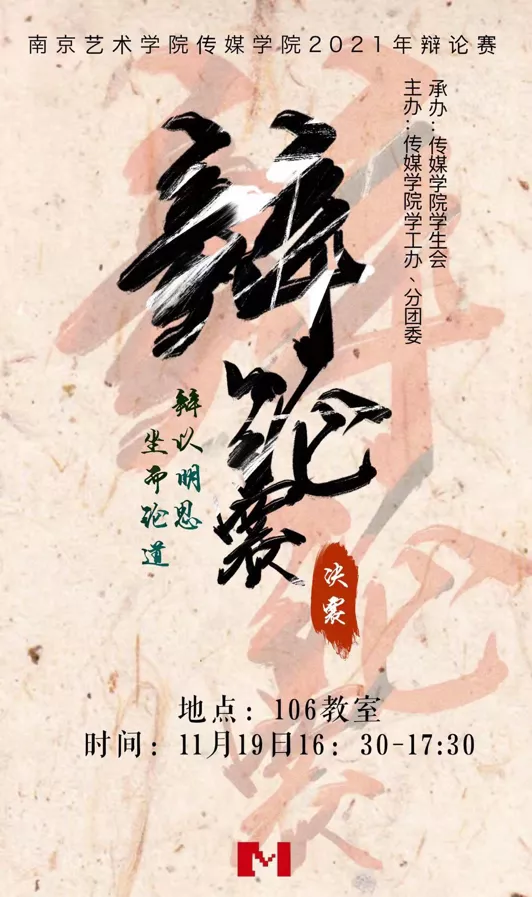 南京艺术学院传媒学院2021年辩论赛
承办：传媒学院学生会
主办：传媒学院学工办、分团委
辩论赛
辩以明思
坐而论道
决赛
地点：106教室
时间：11月19日16：30-17:30